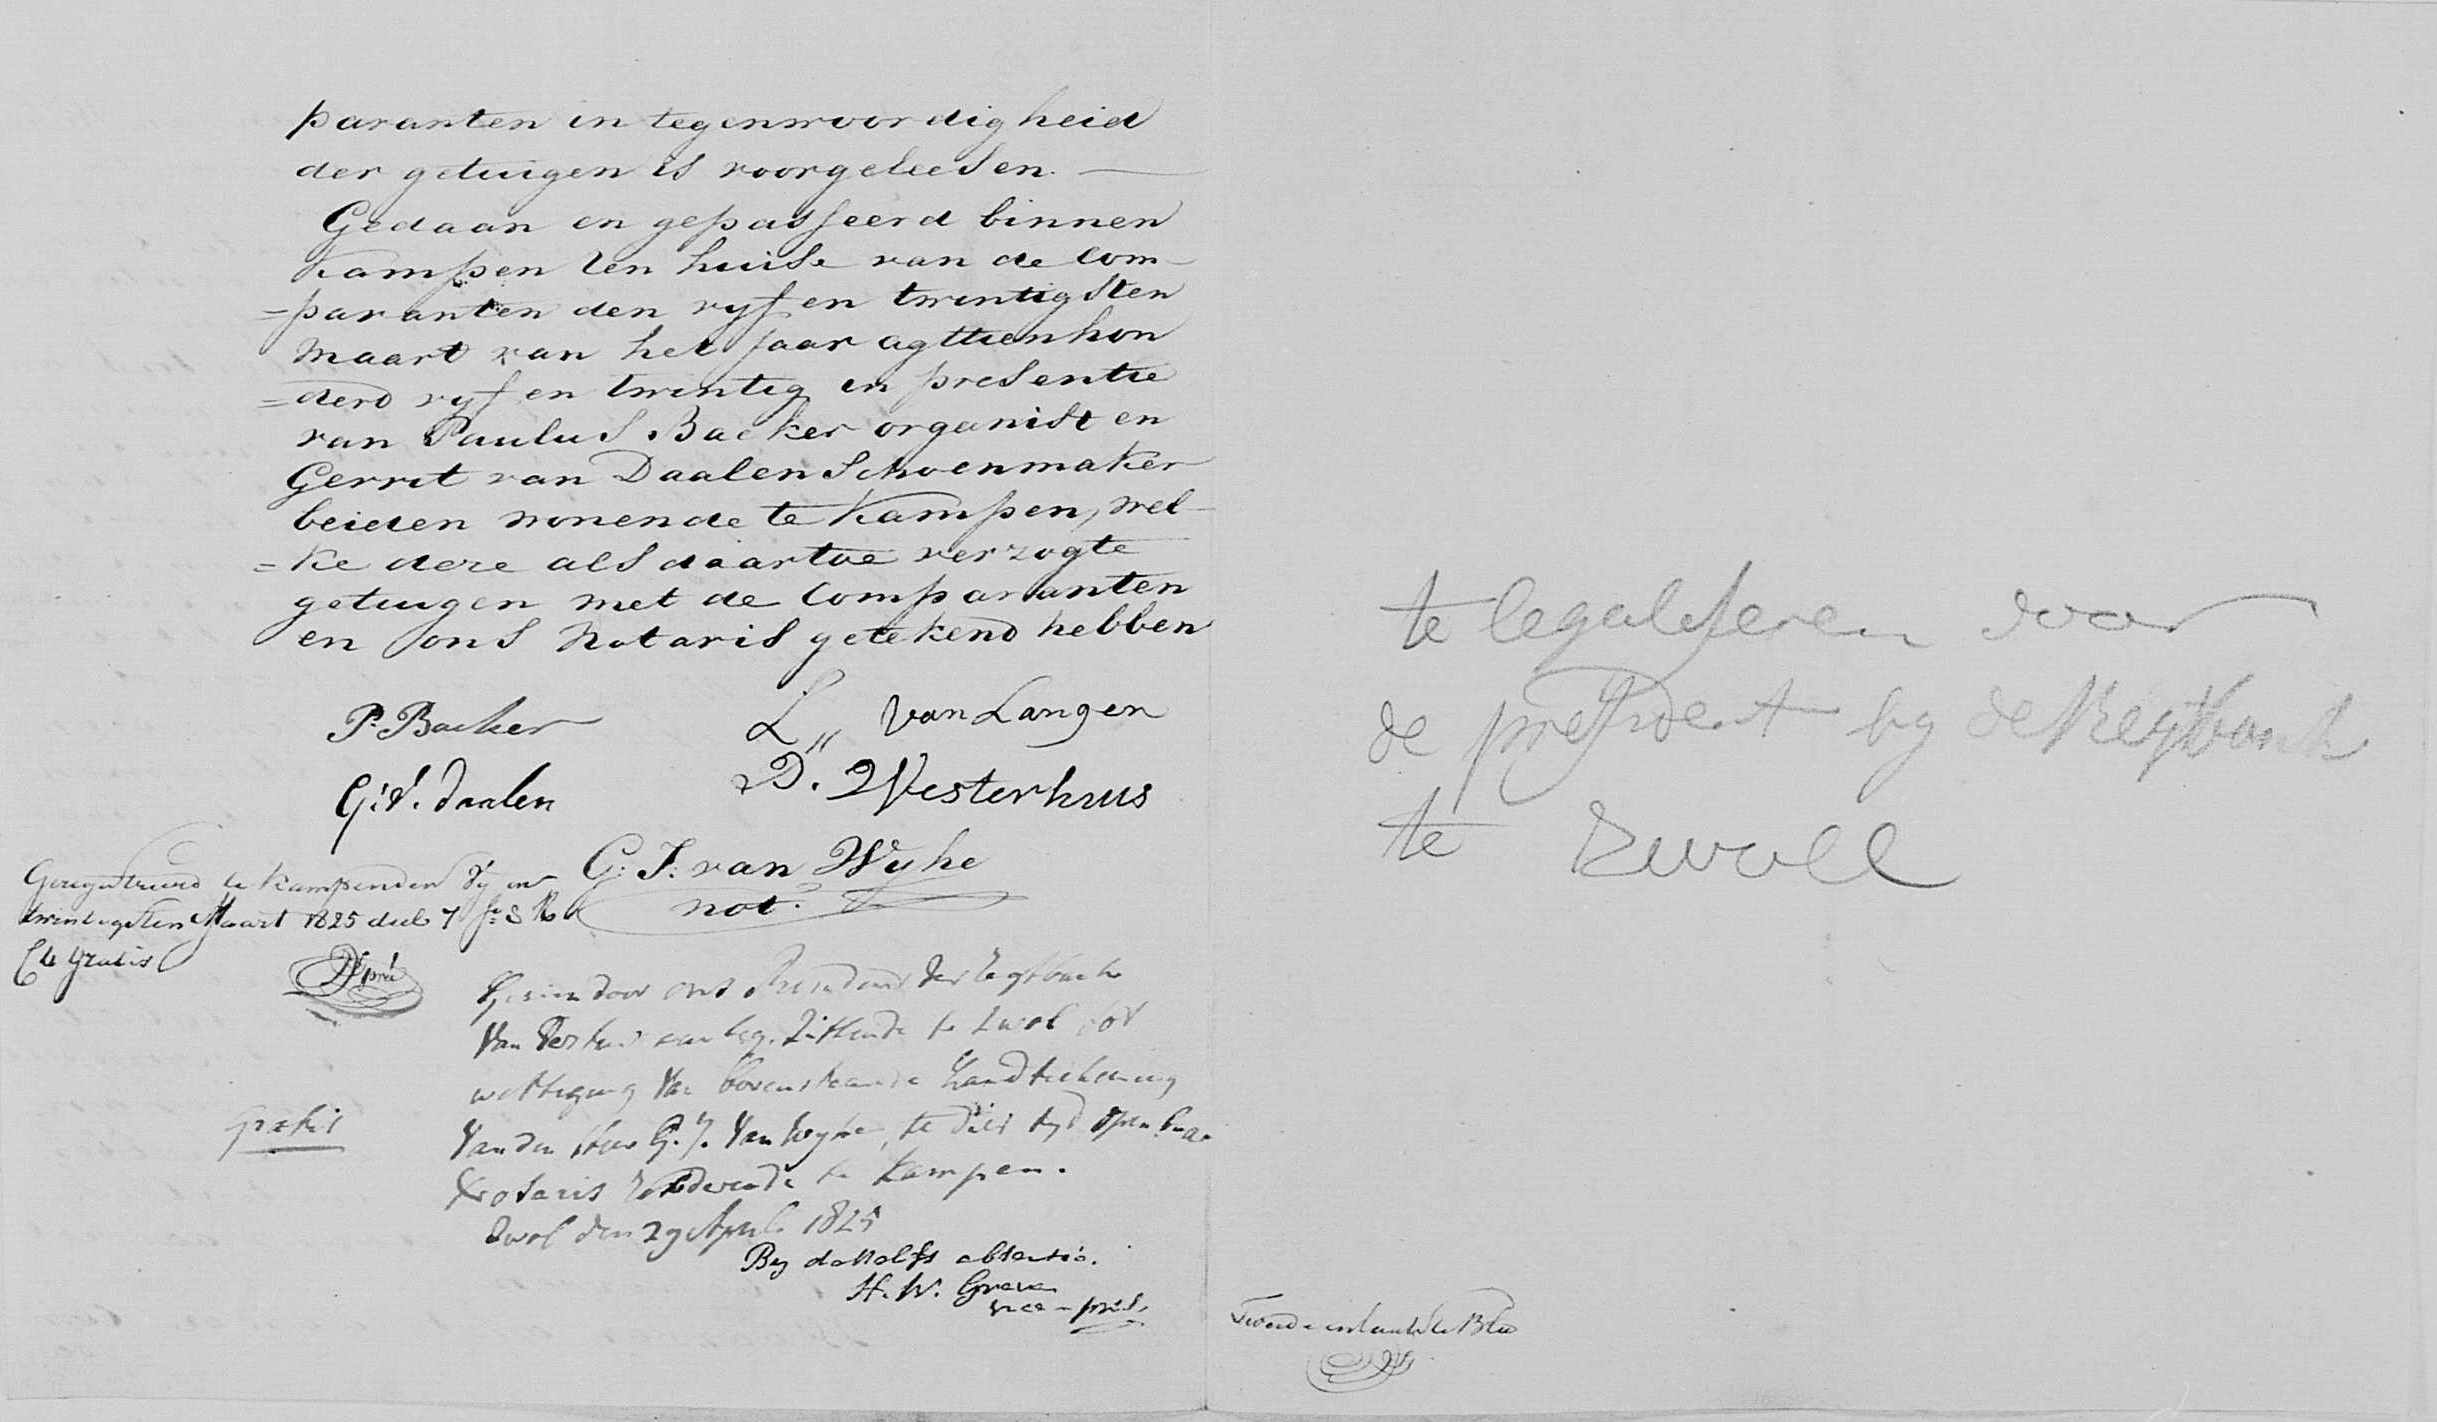 paranten in tegenwoordigheid
der getuigen is voorgeleesen. —
Gedaan en gepasseerd binnen
Kampen ten huise van de Com-
=paranten den vyf en twintigsten
Maart van het jaar agttienhon
=derd vyf en twintig in presentie
van Paulus Backer organist en
Gerrit van Daalen Schoenmaker
beiden wonende te Kampen, wel-
=ke deze als daartoe verzogte
getuigen met de Comparanten
en ons Notaris getekend hebben
P. Backer
L,, van Langen
G: V. Daalen
D. Westerhuis
G: J: van Wyhe
not:
Geregistreerd te Kampen den Vyf en
twintigsten Maart 1825 deel 7
Gratis
Gezien door ons President der Regtbank
van zittende te Zwol tot
wettiging van bovenstaande handtekening
van den Heer G. J. van Wyhe, te dier tyd openbaar
Notaris te Kampen.
Zwol den 29 April 1825
Gratis
By deszelfs absentie.
H. W. Greven
vice-pres.
te legaliseren door
de president by de Regtbank
te Zwoll
Tweede en laatste Blad